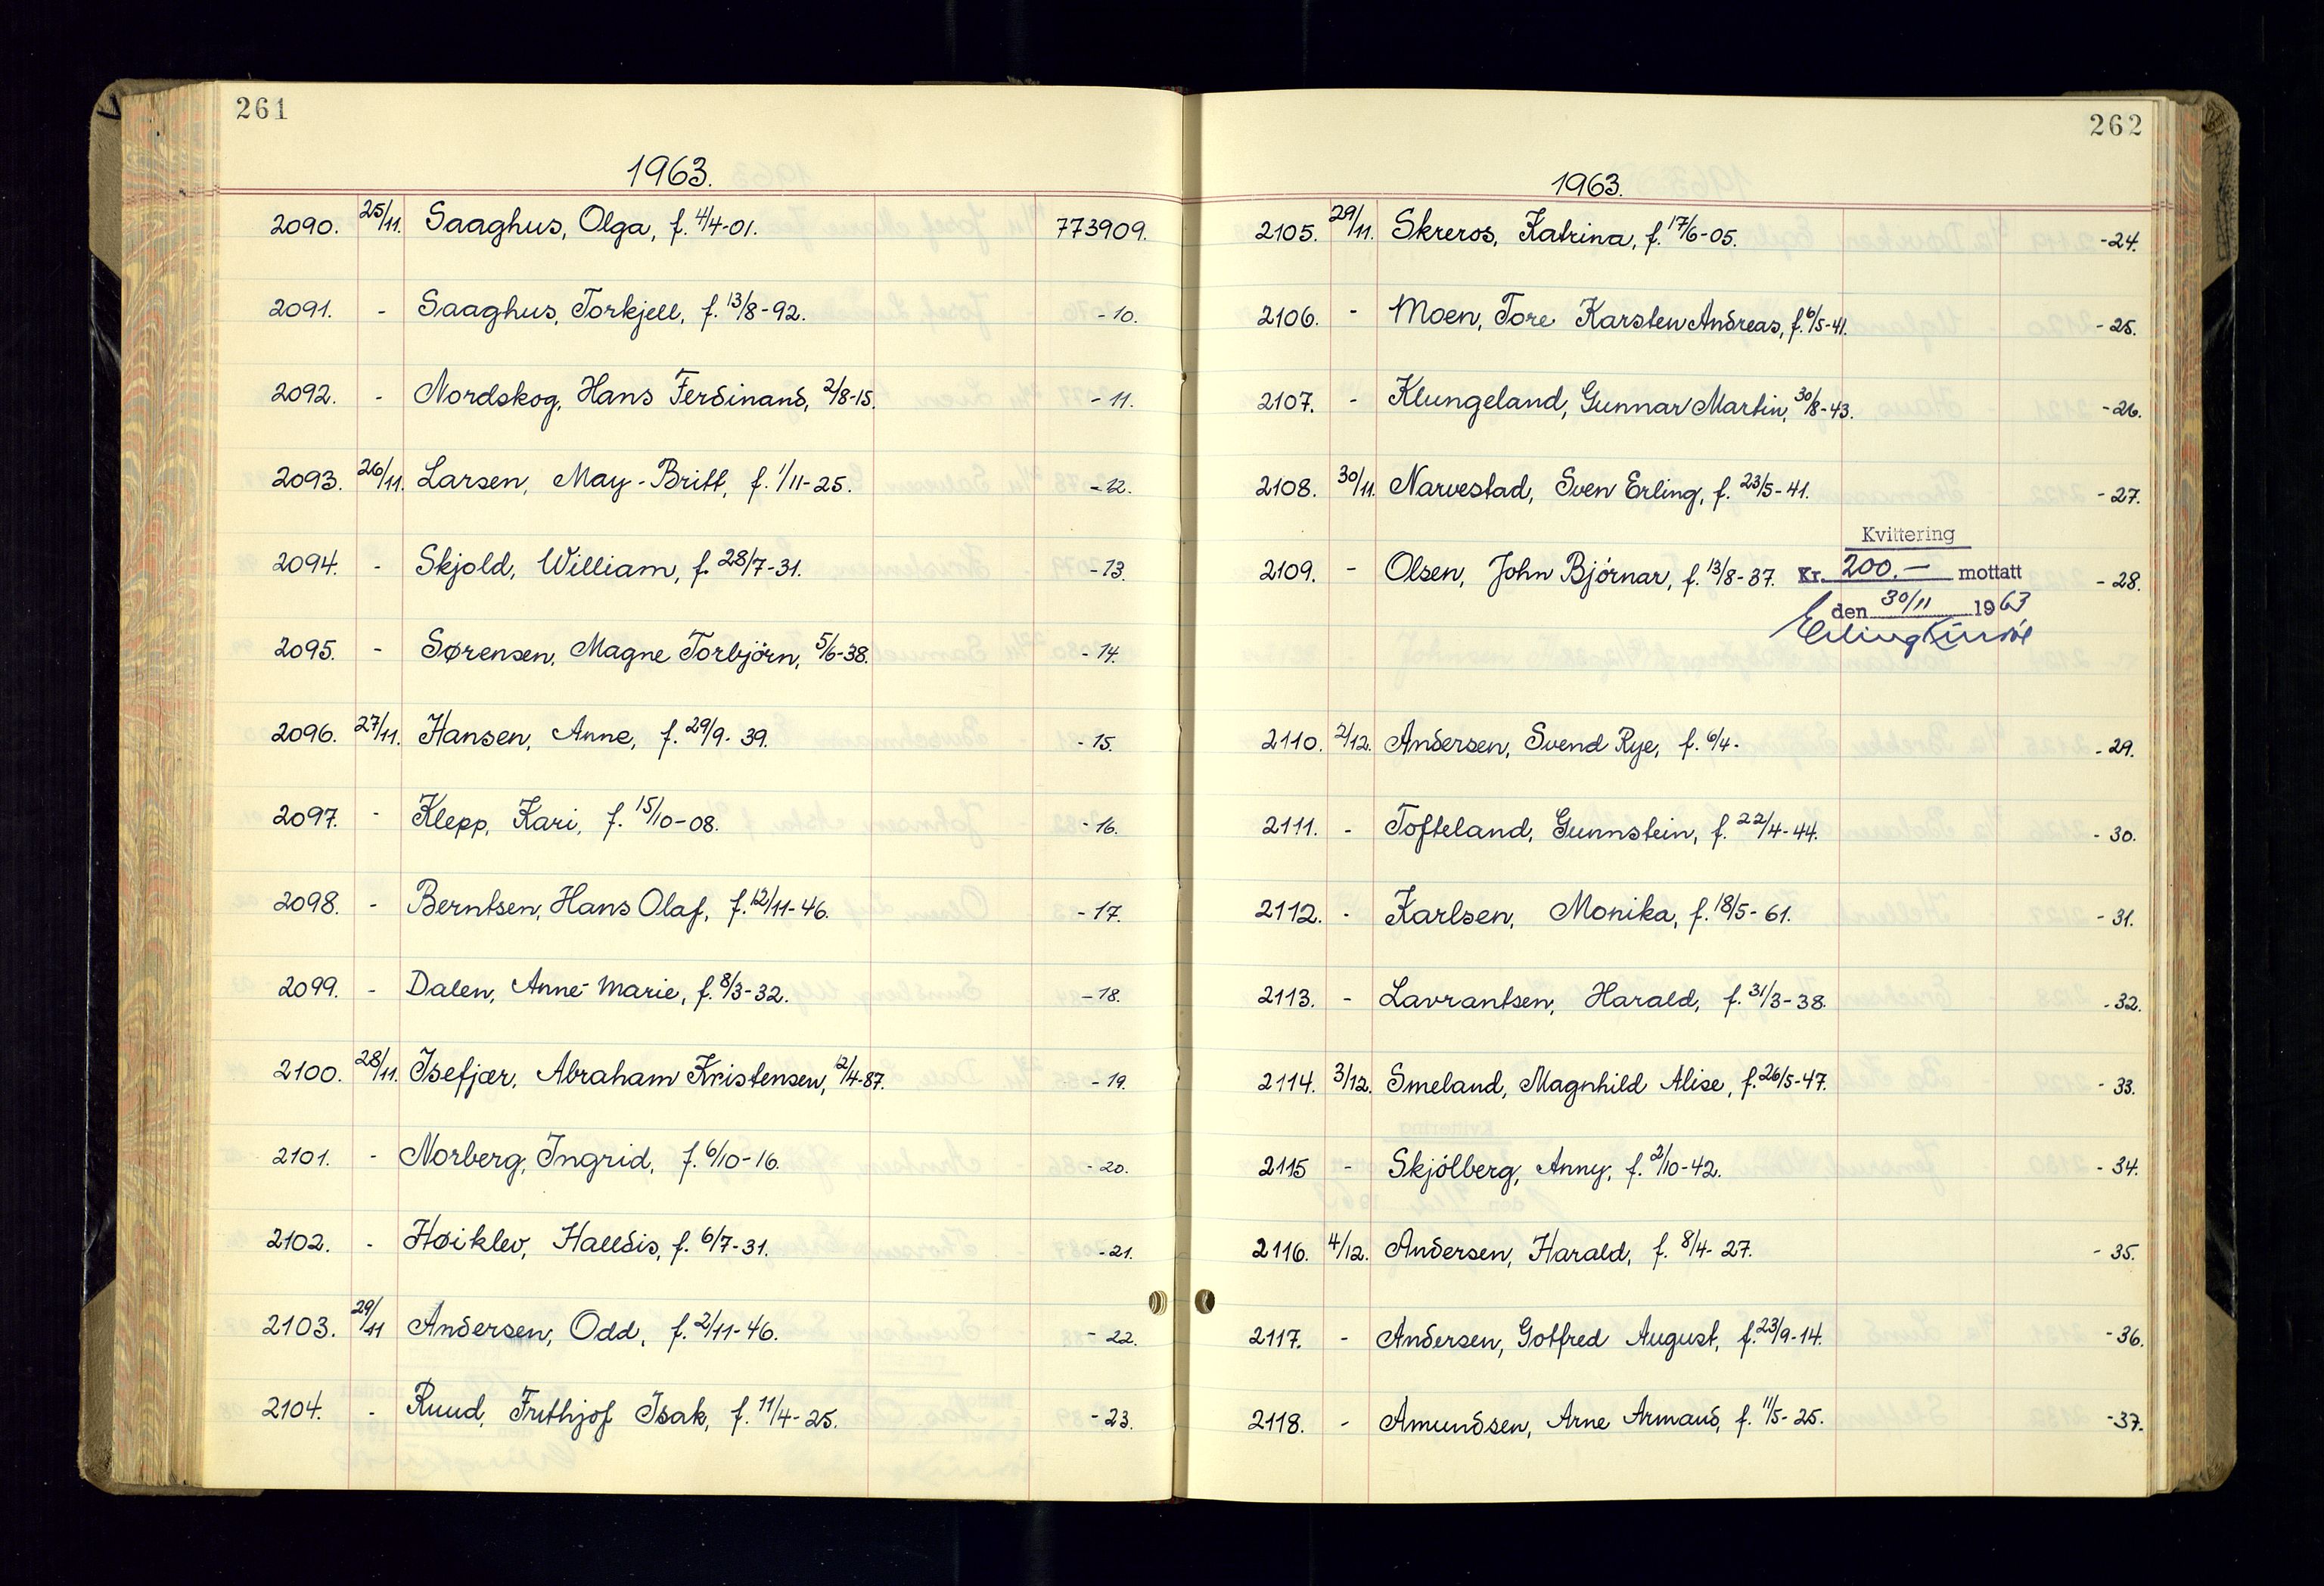 261
1963.
2090. 25/11. Saaghus, Olga, f. 4/4-01. 773909.
2091. - Saaghus, Torkjell, f. 13/8-92. -10.
2092. - Nordskog, Hans Ferdinand, 2/8-15. -11.
2093. 26/11. Larsen, May-Britt, f. 1/11-25. -12.
2094. - Skjold, William, f. 28/7-31. -13.
2095. - Sørensen, Magne Torbjörn, 5/6-38. -14.
2096. 27/11. Hansen, Anne, f. 29/9-39. -15.
2097. - Klepp, Kari, f. 15/10-08. -16.
2098. - Berntsen, Hans Olaf, f. 12/11-46. -17.
2099. - Dalen, Anne-Marie, f. 8/3-32. -18.
2100. 28/11. Isefjær, Abraham Kristensen, 12/4-87. -19.
2101. - Norberg, Ingrid, f. 6/10-16. -20.
2102. - Høiklev, Halldis, f. 6/7-31. -21.
2103. 29/11 Andersen, Odd, f. 2/11-46. -22.
2104. - Ruud, Frithjof Isak, f. 11/4-25. -23.
262
1963.
2105. 29/11. Skreros, Katrina, f. 17/6-05. -24.
2106. - Moen, Tore Karsten Andreas, f. 6/5-41. -25.
2107. - Klungeland, Gunnar Martin, 30/8-43. -26.
2108. 30/11. Narvestad, Sven Erling, f. 23/5-41. -27.
Kvittering
2109. - Olsen, John Bjørnar, f. 13/8-37. Kr. 200.- mottatt -28.
den 30/11 1963
Erling
2110. 2/12. Andersen, Svend Rye, f. 6/4- -29.
2111. - Tofteland, Gunnstein, f. 22/4-44. -30.
2112. - Karlsen, Monika, f. 18/5-61. -31.
2113. - Lavrantsen, Harald, f. 31/3-38. -32.
2114. 3/12. Smeland, Magnhild Alise, f. 26/5-47. -33.
2115 - Skjölberg, Anny, f. 2/10-42. -34.
2116. 4/12. Andersen, Harald, f. 8/4-27. -35.
2117. - Andersen, Gotfred August, f. 23/9-14. -36.
2118. - Amundsen, Arne Armand, f. 11/5-25. -37.